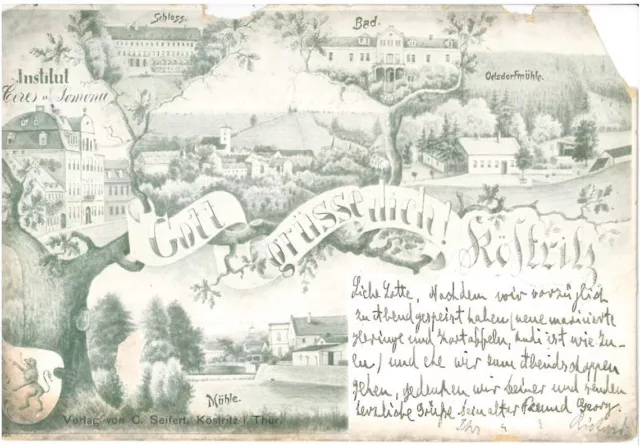 Schloss.
Bad.
Institut
Ceres u. Pomona
Oelsdorfmühle.
Gott grüsse dich!
Köstritz
Liebe Lotte, Nachdem wir vorzüglich
zu Abend gespeist haben (neue marinierte
Heringe und Kartoffeln, ist wie
und ehe wir zum Abendschoppen
gehen, gedenken wir Deiner und senden
herzliche Grüße Dein alter Freund Georg.
Mühle.
Verlag von C. Seifert, Köstritz i. Thür.